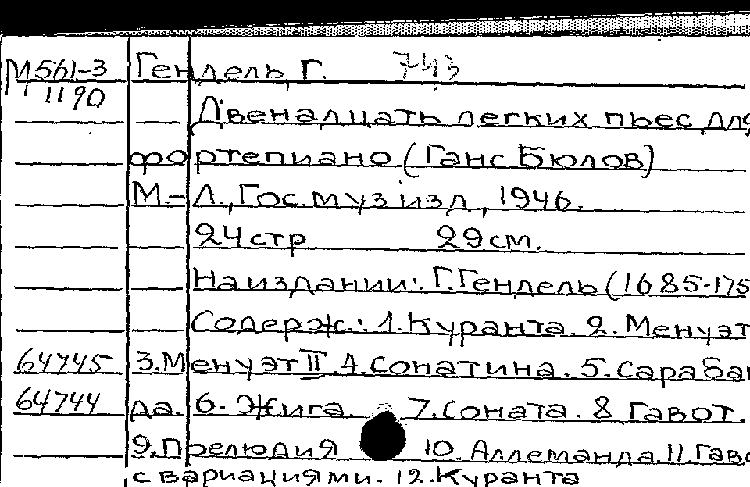 М561-3 Гендель, Г. 743
1190
Двенадцать легких пьес для
фортепиано (Ганс Бюлов)
М.-Л., Гос. муз изд., 1946.
24 стр 29 см.
На издании: Г. Гендель (1685-175
Содерж.: 1. Куранта. 2. Менуэт
64745 3. Менуэт II. 4. Сонатина. 5. Сарабан
64744 да. 6. Жига. 7. Соната. 8 Гавот.
9. Прелюдия 10. Аллеманда. 11. Гаво
с вариациями. 12. Куранта